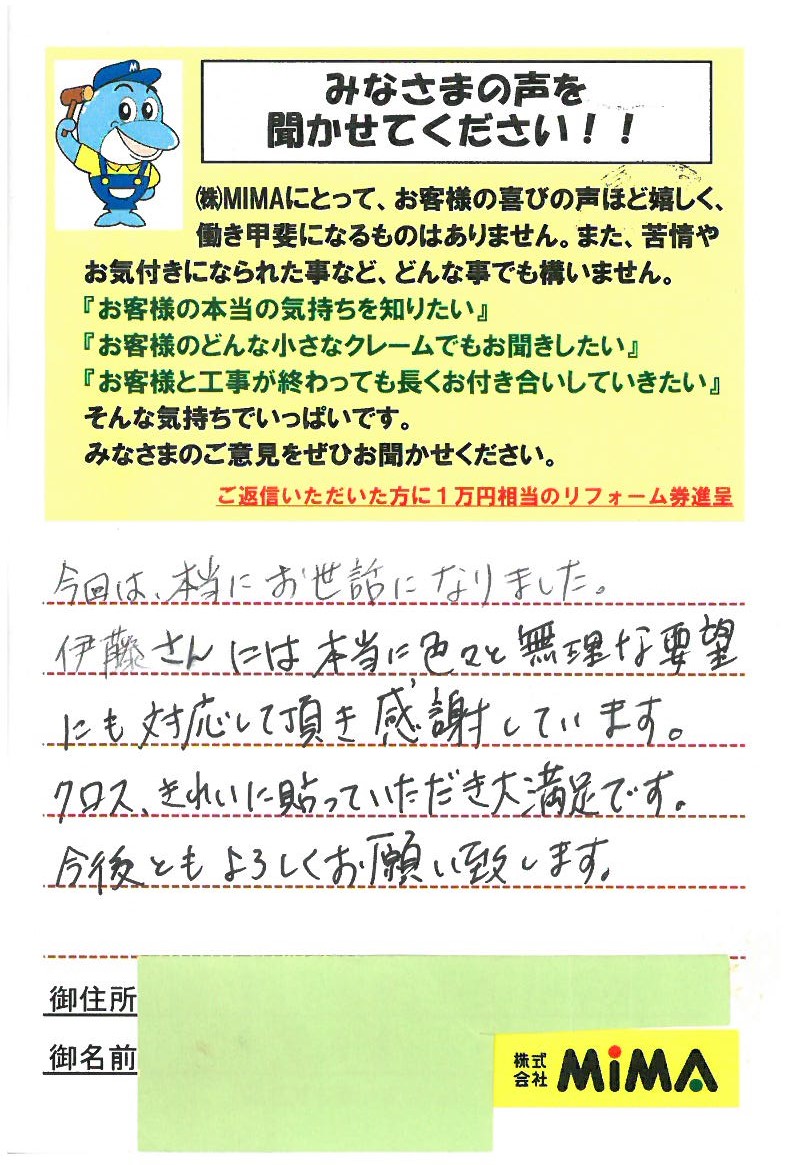 M
みなさまの声を
聞かせてください！！
㈱MIMAにとって、お客様の喜びの声ほど嬉しく、
働き甲斐になるものはありません。また、苦情や
お気付きになられた事など、どんな事でも構いません。
『お客様の本当の気持ちを知りたい』
『お客様のどんな小さなクレームでもお聞きしたい』
『お客様と工事が終わっても長くお付き合いしていきたい』
そんな気持ちでいっぱいです。
みなさまのご意見をぜひお聞かせください。
ご返信いただいた方に１万円相当のリフォーム券進呈
今回は、本当にお世話になりました。
伊藤さんには本当に色々と無理な要望
にも対応して頂き感謝しています。
クロス、きれいに貼っていただき大満足です。
今後ともよろしくお願い致します。
御住所
御名前
株式会社 MiMA